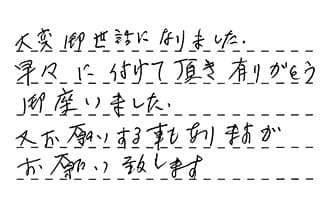 大変御世話になりました.
早々に付けて頂き有りがとう
御座いました.
又お願いする事もありますが
お願い致します